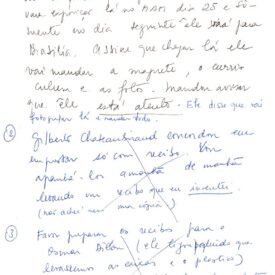 dia 25 e só-
mente no dia seguinte ele irá para
Brasília. Assim que chegar lá ele
vai mandar a maquete, o curri-
culum e as fotos. Mandou avisar
que Ele está atento. Ele disse que vai
fotografar lá e mandar tudo.
② Gilberto Chateaubriand concordou em
emprestar só com recibo. Vou
apanhá-los amanhã de manhã
levando um recibo que eu inventei.
(não achei nem uma cópia)
③ Favor preparar os recibos para o
Osmar Dillon (ele
levássemos as caixas e o plástico)